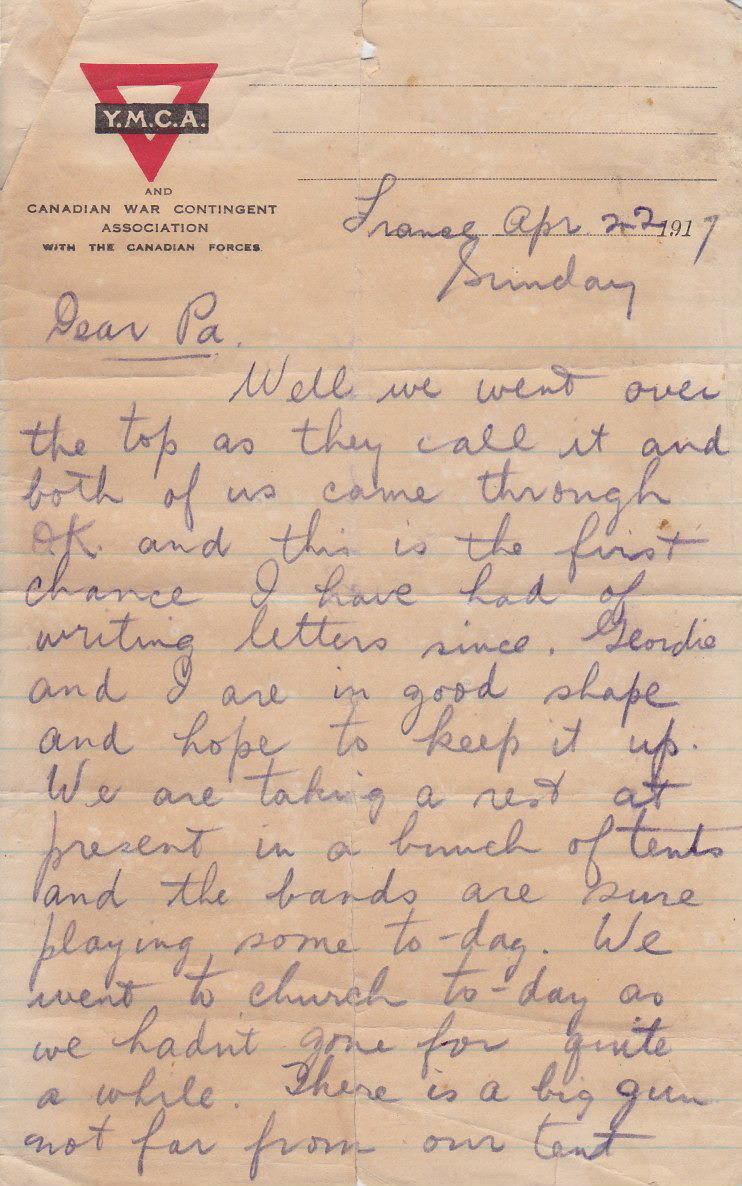 Y.M.C.A.
AND
CANADIAN WAR CONTINGENT
ASSOCIATION
WITH THE CANADIAN FORCES.
France Apr 22 1917
Sunday
Dear Pa.
Well we went over
the top as they call it and
both of us came through
O.K. and this is the first
chance I have had of
writing letters since. Geordie
and I are in good shape
and hope to keep it up.
We are taking a rest at
present in a bunch of tents
and the bands are sure
playing some to-day. We
went to church to-day as
we hadn't gone for quite
a while. There is a big gun
not far from our tent